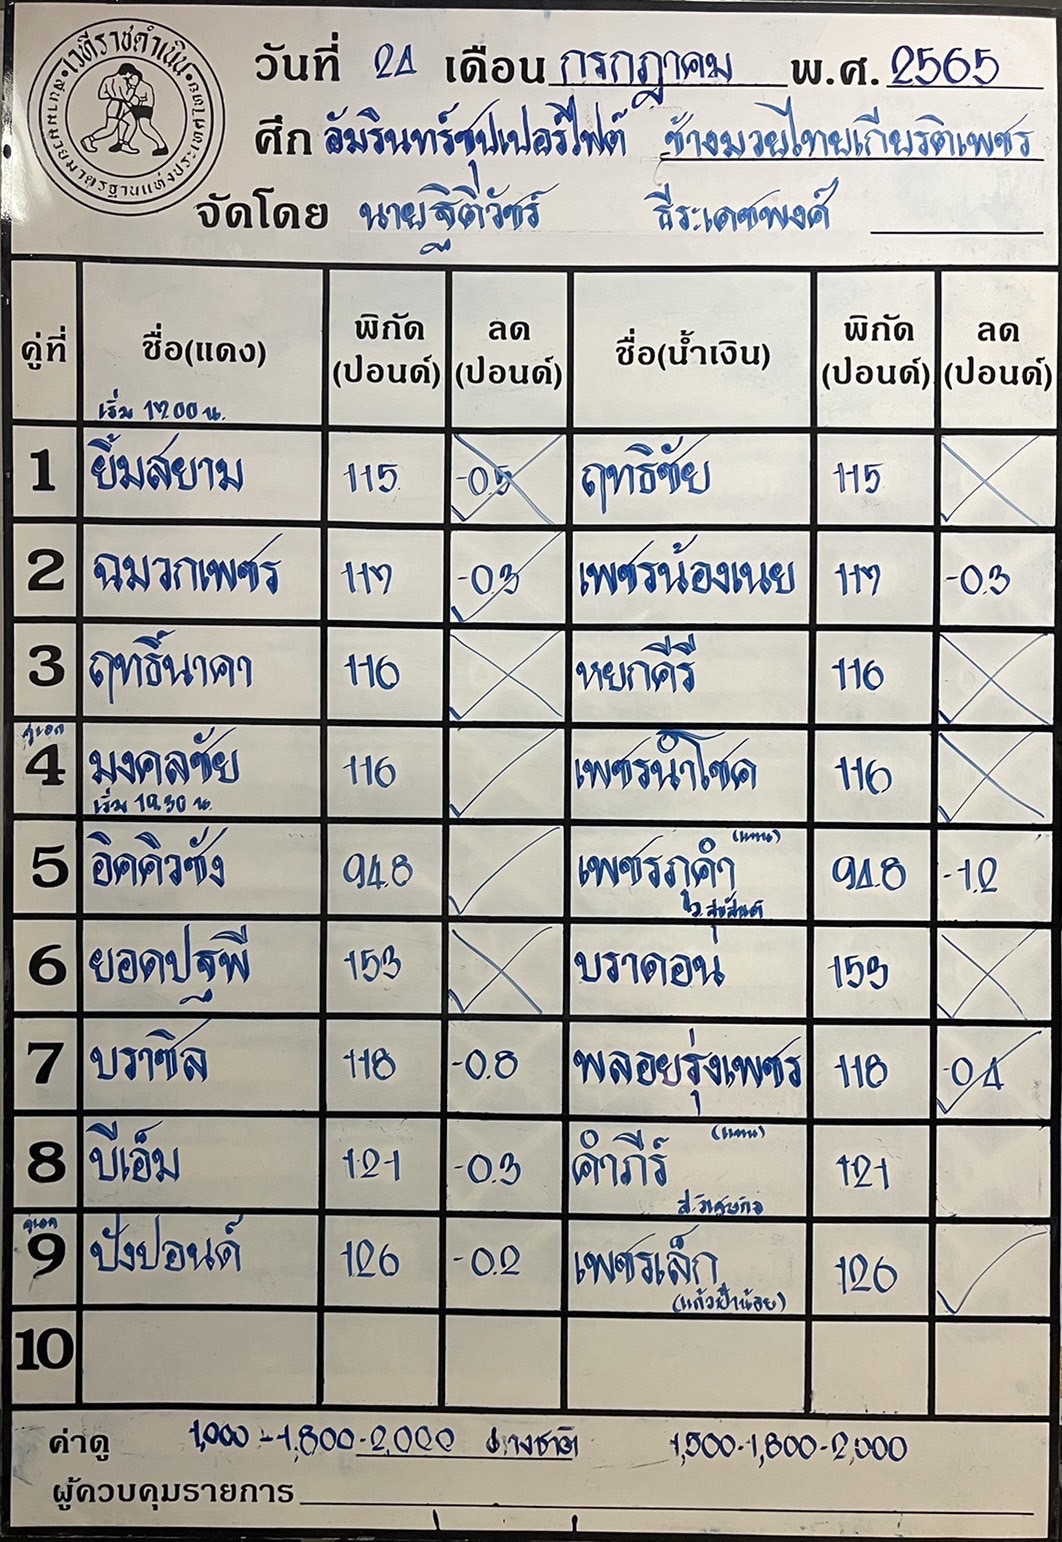 เวทีราชดำเนิน
สนามมวยมาตรฐานแห่งประเทศไทย
วันที่ 24 เดือน กรกฎาคม พ.ศ. 2565
ศึก อัมรินทร์ซุปเปอร์ไฟต์ ช้างมวยไทยเกียรติเพชร
จัดโดย นายฐิติวัชร์ ธีระเดชพงศ์
คู่ที่ ชื่อ(แดง) พิกัด (ปอนด์) ลด (ปอนด์) ชื่อ(น้ำเงิน) พิกัด (ปอนด์) ลด (ปอนด์)
เริ่ม 17.00 น.
1 ยิ้มสยาม 115 -0.5 ฤทธิชัย 115
2 ฉมวกเพชร 117 -0.3 เพชรน้องเนย 117 -0.3
3 ฤทธิ์นาคา 116 หยกคีรี 116
คู่เอก
4 มงคลชัย 116 เพชรนำโชค 116
เริ่ม 19.30 น.
(แทน)
5 อิคคิวซัง 94.8 เพชรภูคำ 94.8 -1.2
6 ยอดปฐพี 153 บราดอน 153
7 บราซิล 118 -0.8 พลอยรุ่งเพชร 118 -0.4
(แทน)
8 บีเอ็ม 121 -0.3 คำภีร์ 121
คู่เอก
9 ปังปอนด์ 126 -0.2 เพชรเล็ก 126
(แก้วฟ้าน้อย)
10
ค่าดู 1,000-1,800-2,000 ต่างชาติ 1,500-1,800-2,000
ผู้ควบคุมรายการ